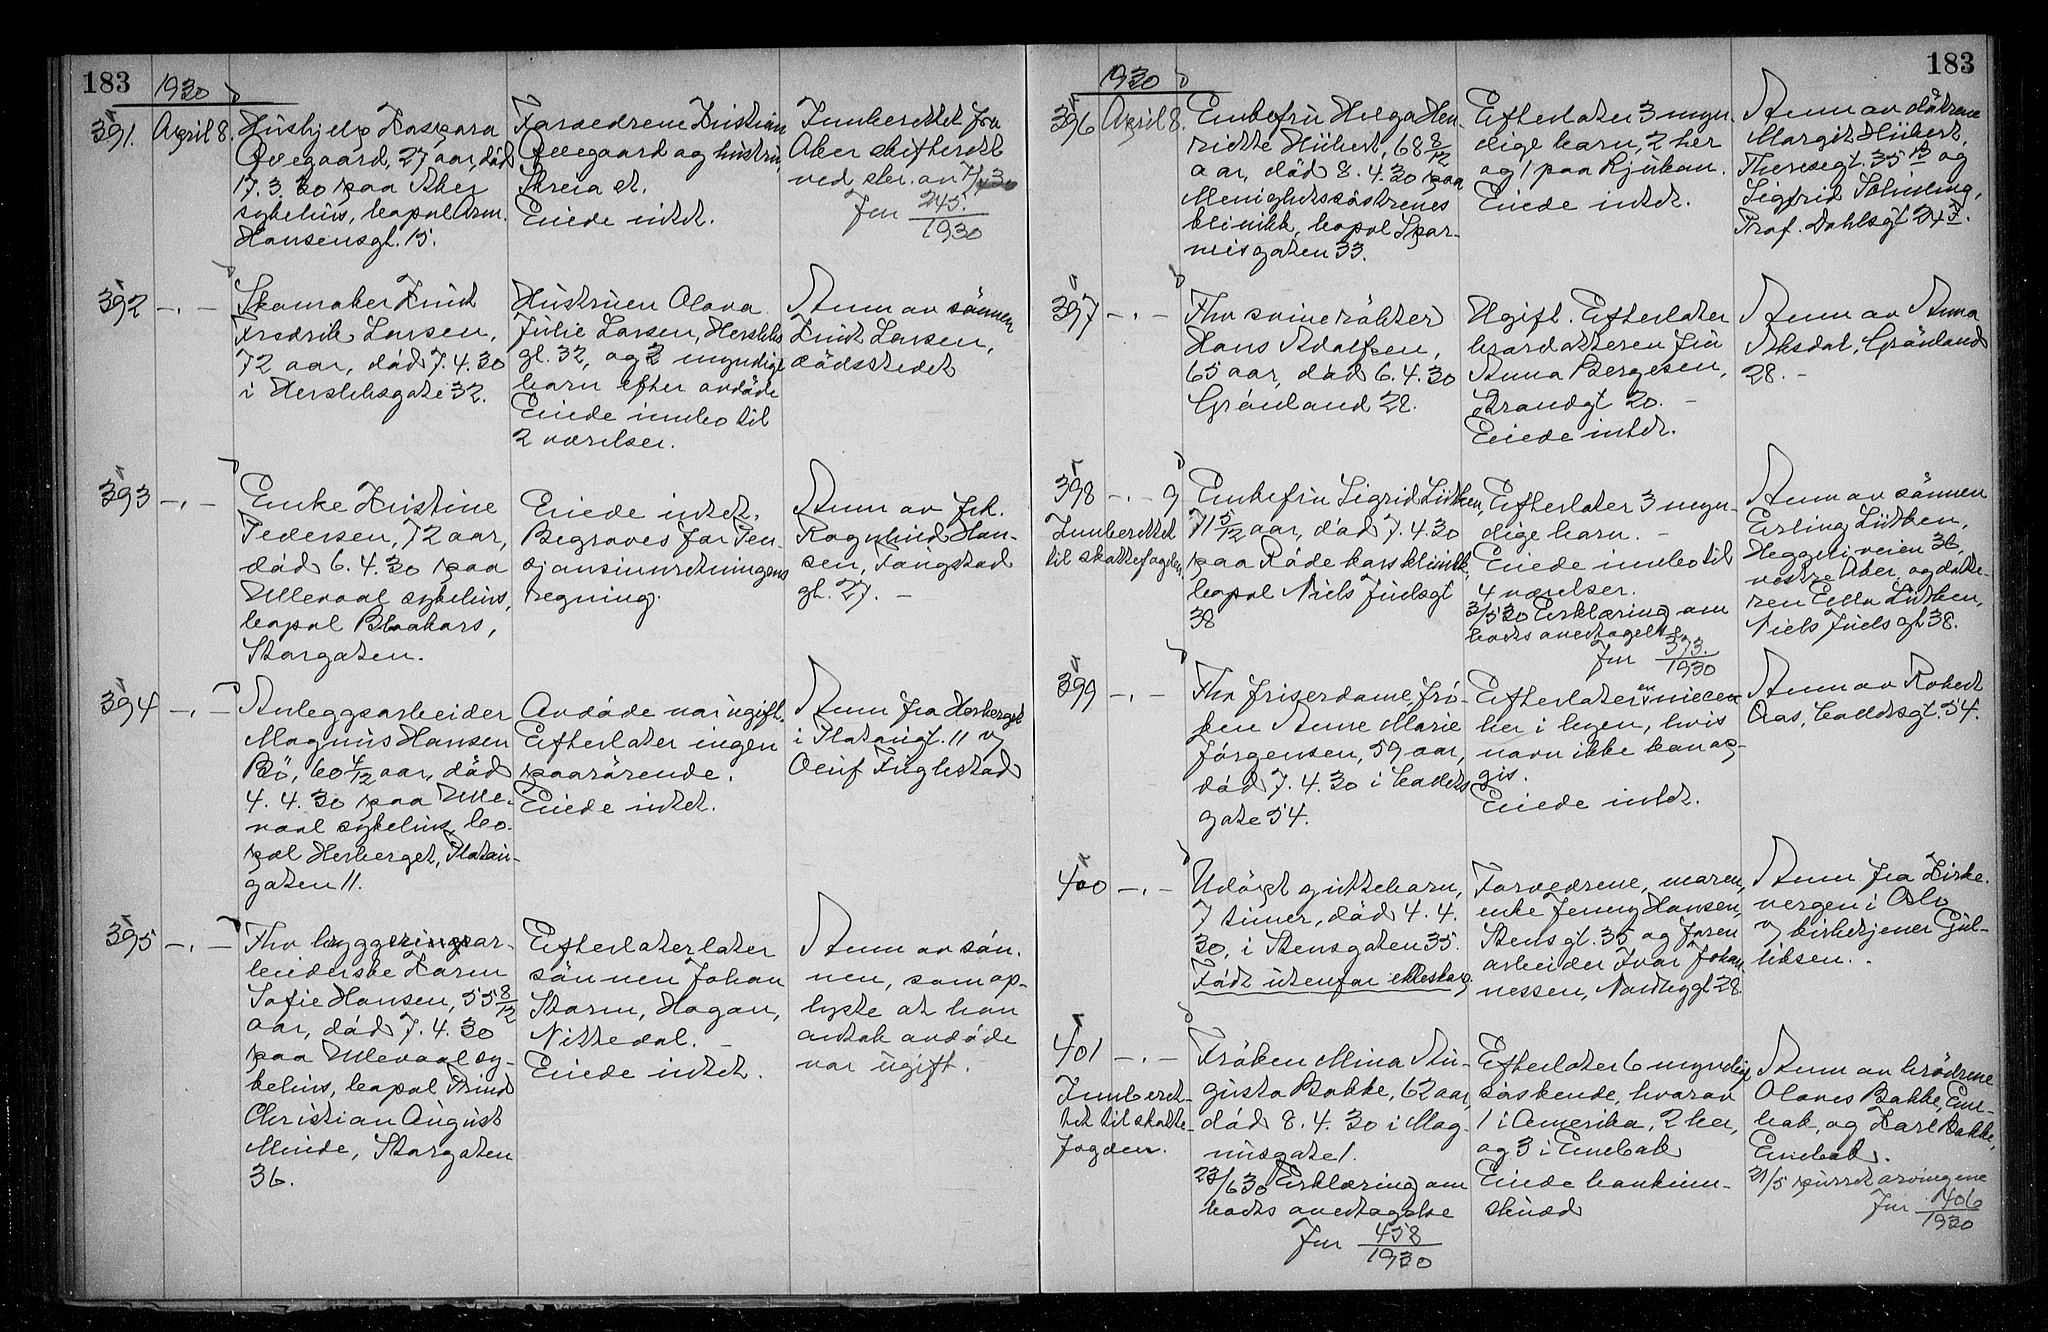 183
1930
391. April 8. Hushjelp Kaspara
Ovegaard, 27 aar, död
17.3.30 paa Aker
sykehus, bopæl Arm.
Hansensgt. 15.
Forældrene Kristian
Ovegaard og hustru,
Skreia st.
Eiede intet.
Innberettet fra
Aker skifterett
ved skr. av 7/4 30
Jnr 245
1930
392 -„- Skomaker Knut
Fredrik Larsen,
72 aar, död 7.4.30
i Herslebsgate 32.
Hustruen Olava
Julie Larsen, Herslebs
gt. 32, og 2 myndige
barn efter avdöde
Eiede innbo til
2 værelser.
Anm av sönnen
Knut Larsen,
dödsstedet
393 -„- Enke Kristine
Pedersen, 72 aar,
död 6.4.30 paa
Ullevaal sykehus,
bopæl Blaakors,
Storgaten.
Eiede intet.
Begraves for Pen-
sjonsinnretningens
regning.
Anm av frk.
Ragnhild Han-
sen, Tangstad
gt. 27. -
394 -„- Anleggsarbeider
Magnus Hansen
Bö, 60 4/12 aar, död
4.4.30 paa Ulle-
vaal sykehus, bo-
pæl Herberget, Platau-
gaten 11.
Avdöde var ugift.
Efterlater ingen
paarörende.
Eiede intet.
Anm fra Herberget
i Plataugt. 11 v/
Oluf Fuglestad
395 -„- Fhv bryggeriar-
beiderske Karen
Sofie Hansen, 55 8/12
aar, död 7.4.30
paa Ullevaal sy-
kehus, bopæl Prins
Christian August
Minde, Storgaten
36.
Efterlaterlater
sönnen Johan
Storm, Hagan,
Nittedal. -
Eiede intet.
Anm av sön-
nen, som op-
lyste at han
antok avdöde
var ugift.
183
1930
396 April 8. Enkefru Helga Hen-
riette Hübert, 68 8/12
aar, död 8.4.30 paa
Menighetssöstrenes
klinikk, bopæl Spor-
veisgaten 33.
Efterlater 3 myn-
dige barn, 2 her
og 1 paa Rjukan.
Eiede intet.
Anm av dötrene
Margit Hübert,
Theresegt. 35 B og
Sigfrid Solmeling,
Prof. Dahlsgt 24 F.
397 -„- Fhv svinerökter
Hans Adolfsen,
65 aar, död 6.4.30
Grönland 28.
Ugift. Efterlater
brordatteren fru
Anna Bergesen,
Strandgt 20. -
Eiede intet.
Anm av Anna
Aksdal, Grönland
28. -
398 -„- 9 Enkefru Sigrid Lütken,
Innberettet
til skattefogden.
71 5/12 aar, död 7.4.30
paa Röde kors klinikk,
bopæl Niels Juelsgt
38
Efterlater 3 myn-
dige barn. -
Eiede innbo til
4 værelser.
3/5 30 Erklæring om
bods overtagelse
Jnr 373.
1930
Anm av sönnen
Erling Lütken,
Heggeliveien 36,
vestre Aker, og datte-
ren Ella Lütken,
Niels Juels gt 38.
399 -„- Fhv friserdame, frö-
ken Anne Marie
Jörgensen, 59 aar,
död 7.4.30 i Calles
gate 54.
Efterlater en niece
her i byen, hvis
navn ikke kan op-
gis.
Eiede intet.
Anm av Robert
Aas, Calles gt. 54.
400 -„- Udöpt guttebarn,
7 timer, död 4.4.
30, i Stensgaten 35.
Födt utenfor ekteskap.
Forældrene, moren,
enke Jenny Hansen,
Stensgt. 35 og faren
arbeider Ivar Johan-
nessen, Nordbygt 28.
Anm fra Kirke-
vergen i Oslo
v/ kirketjener Gul-
liksen. -
401 -„- Fröken Mina Au-
Innberet-
tet til skatte-
fogden.
gusta Bakke, 62 aar,
död 8.4.30 i Mag-
nusgate 1.
23/6 30 Erklæring om
bods overtagelse
Jnr 458
1930
Efterlater 6 myndige
söskende, hvorav
1 i Amerika, 2 her,
og 3 i Enebak
Eiede bankinn-
skudd
Anm av brödrene
Olaves Bakke, Ene-
bak, og Karl Bakke,
Enebak.
31/5 purret arvingene
Jnr 406
1930